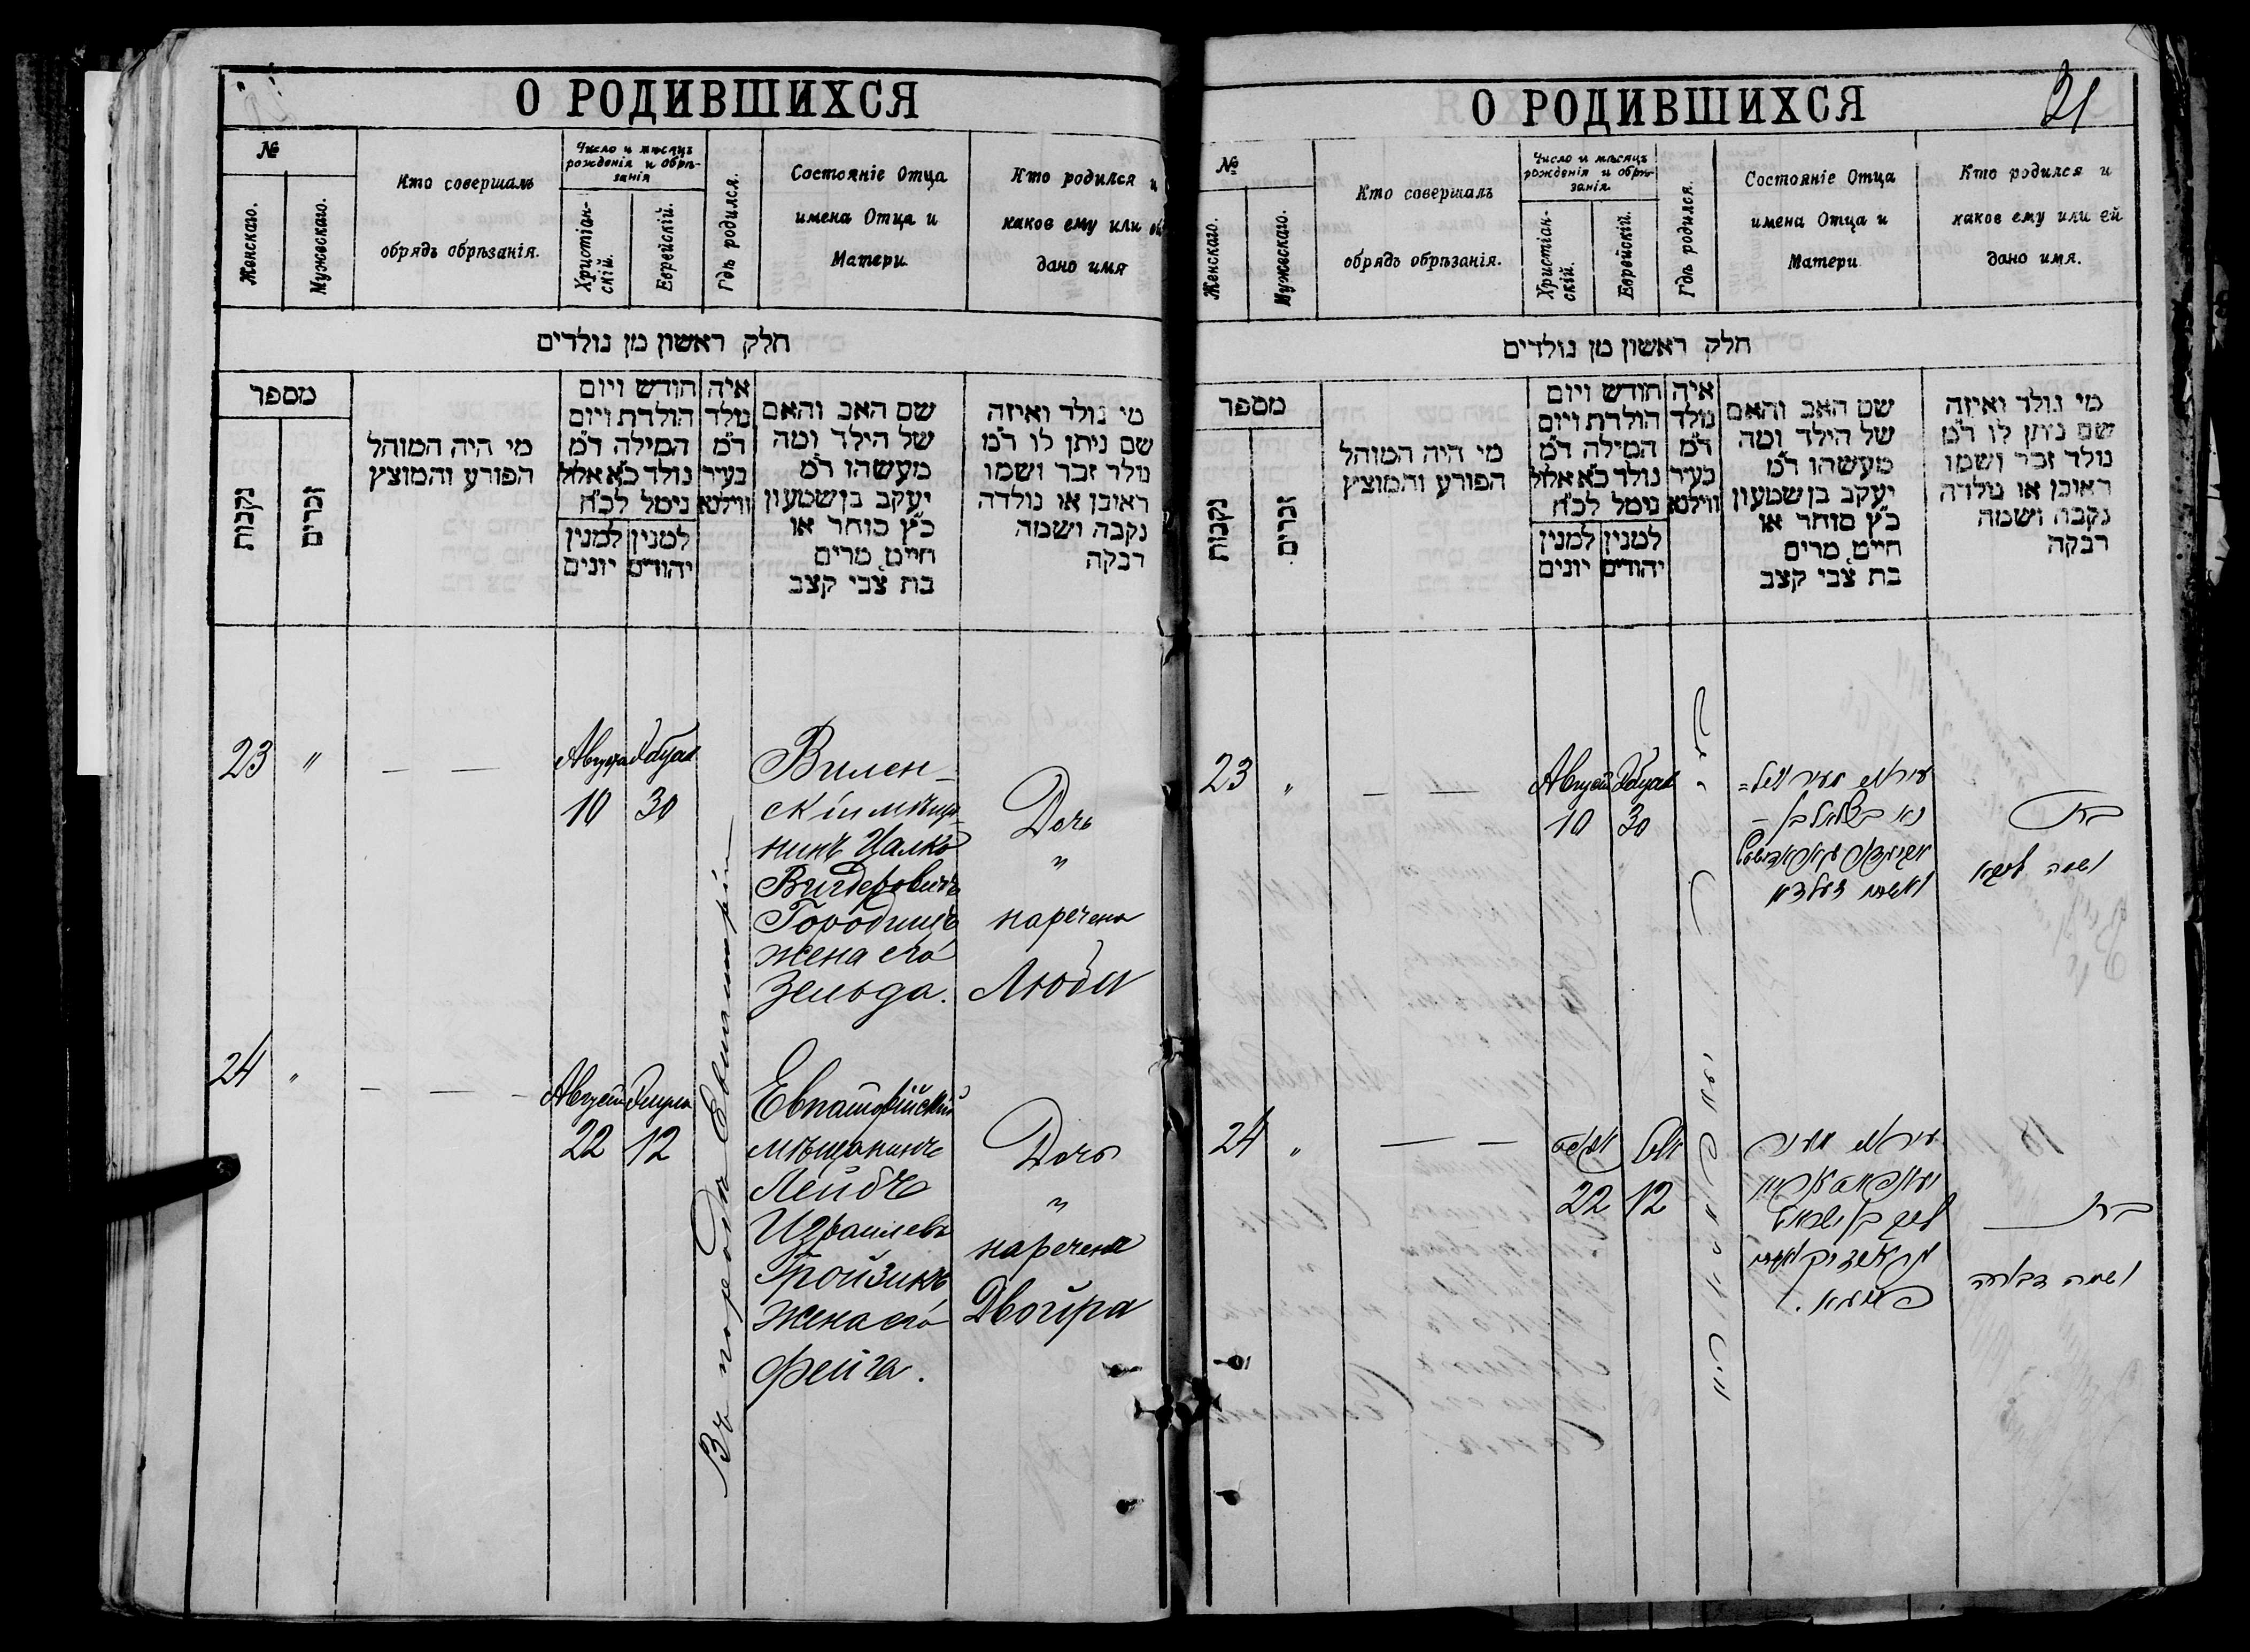 О РОДИВШИХСЯ
№
Женскаго.
Мужескаго.
Кто совершалъ
обрядъ обрѣзанія.
Число и мѣсяцъ
рожденія и обрѣ-
занія
Христіан-
скій.
Еврейскій.
Гдѣ родился.
Состояніе Отца
имена Отца и
Матери
Кто родился и
каков ему или
дано имя
חלק ראשון מן נולדים
מספר
נקבות
זכרים
מי היה המוהל
הפורע והמוצץ
חודש ויום
הולדת ויום
המילה ד״מ
נולד כ״א אלול
נימל לכ״ח
למנין
יהודים
למנין
יונים
איה
נולד
ד״מ
בעיר
ווילנא
שם האב והאם
של הילד ומה
מעשהו ד״מ
יעקב בן שמעון
כ״ץ סוחר או
חייט מרים
בת צבי קצב
מי נולד ואיזה
שם ניתן לו ד״מ
נולד זכר ושמו
ראובן או נולדה
נקבה ושמה
רבקה
23 〃 — —
Августа
10
30
Вилен-
скій мѣща-
нинъ Цалко
Вигдеровичъ
Городищъ
жена его
Зельда.
Дочь
〃
наречена
Люба
24 〃 — — -
Август
22
12
Евпаторійскій
мѣщанинъ
Лейбъ
Израилевъ
Гройзикъ
жена его
Фейга.
Дочь
〃
наречена
Двойра
Въ городѣ Евпаторіи
О РОДИВШИХСЯ
21
№
Женскаго.
Мужескаго.
Кто совершалъ
обрядъ обрѣзанія.
Число и мѣсяцъ
рожденія и обрѣ-
занія.
Христіан-
скій.
Еврейскій.
Гдѣ родился.
Состояніе Отца
имена Отца и
Матери
Кто родился и
каков ему или ей
дано имя.
חלק ראשון מן נולדים
מספר
נקבות
זכרים
מי היה המוהל
הפורע והמוצץ
חודש ויום
הולדת ויום
המילה ד״מ
נולד כ״א אלול
נימל לכ״ח
למנין
יהודים
למנין
יונים
איה
נולד
ד״מ
בעיר
ווילנא
שם האב והאם
של הילד ומה
מעשהו ד״מ
יעקב בן שמעון
כ״ץ סוחר או
חייט מרים
בת צבי קצב
מי נולד ואיזה
שם ניתן לו ד״מ
נולד זכר ושמו
ראובן או נולדה
נקבה ושמה
רבקה
23 〃 — —
Август
10
30
עירוני מעיר ווילנא
בת
ושמה ליבא
24 〃 — —
אויגוסט
22
אלול
12
עירוני מעיר
ליב בן ישראל
בת
ושמה דבורה